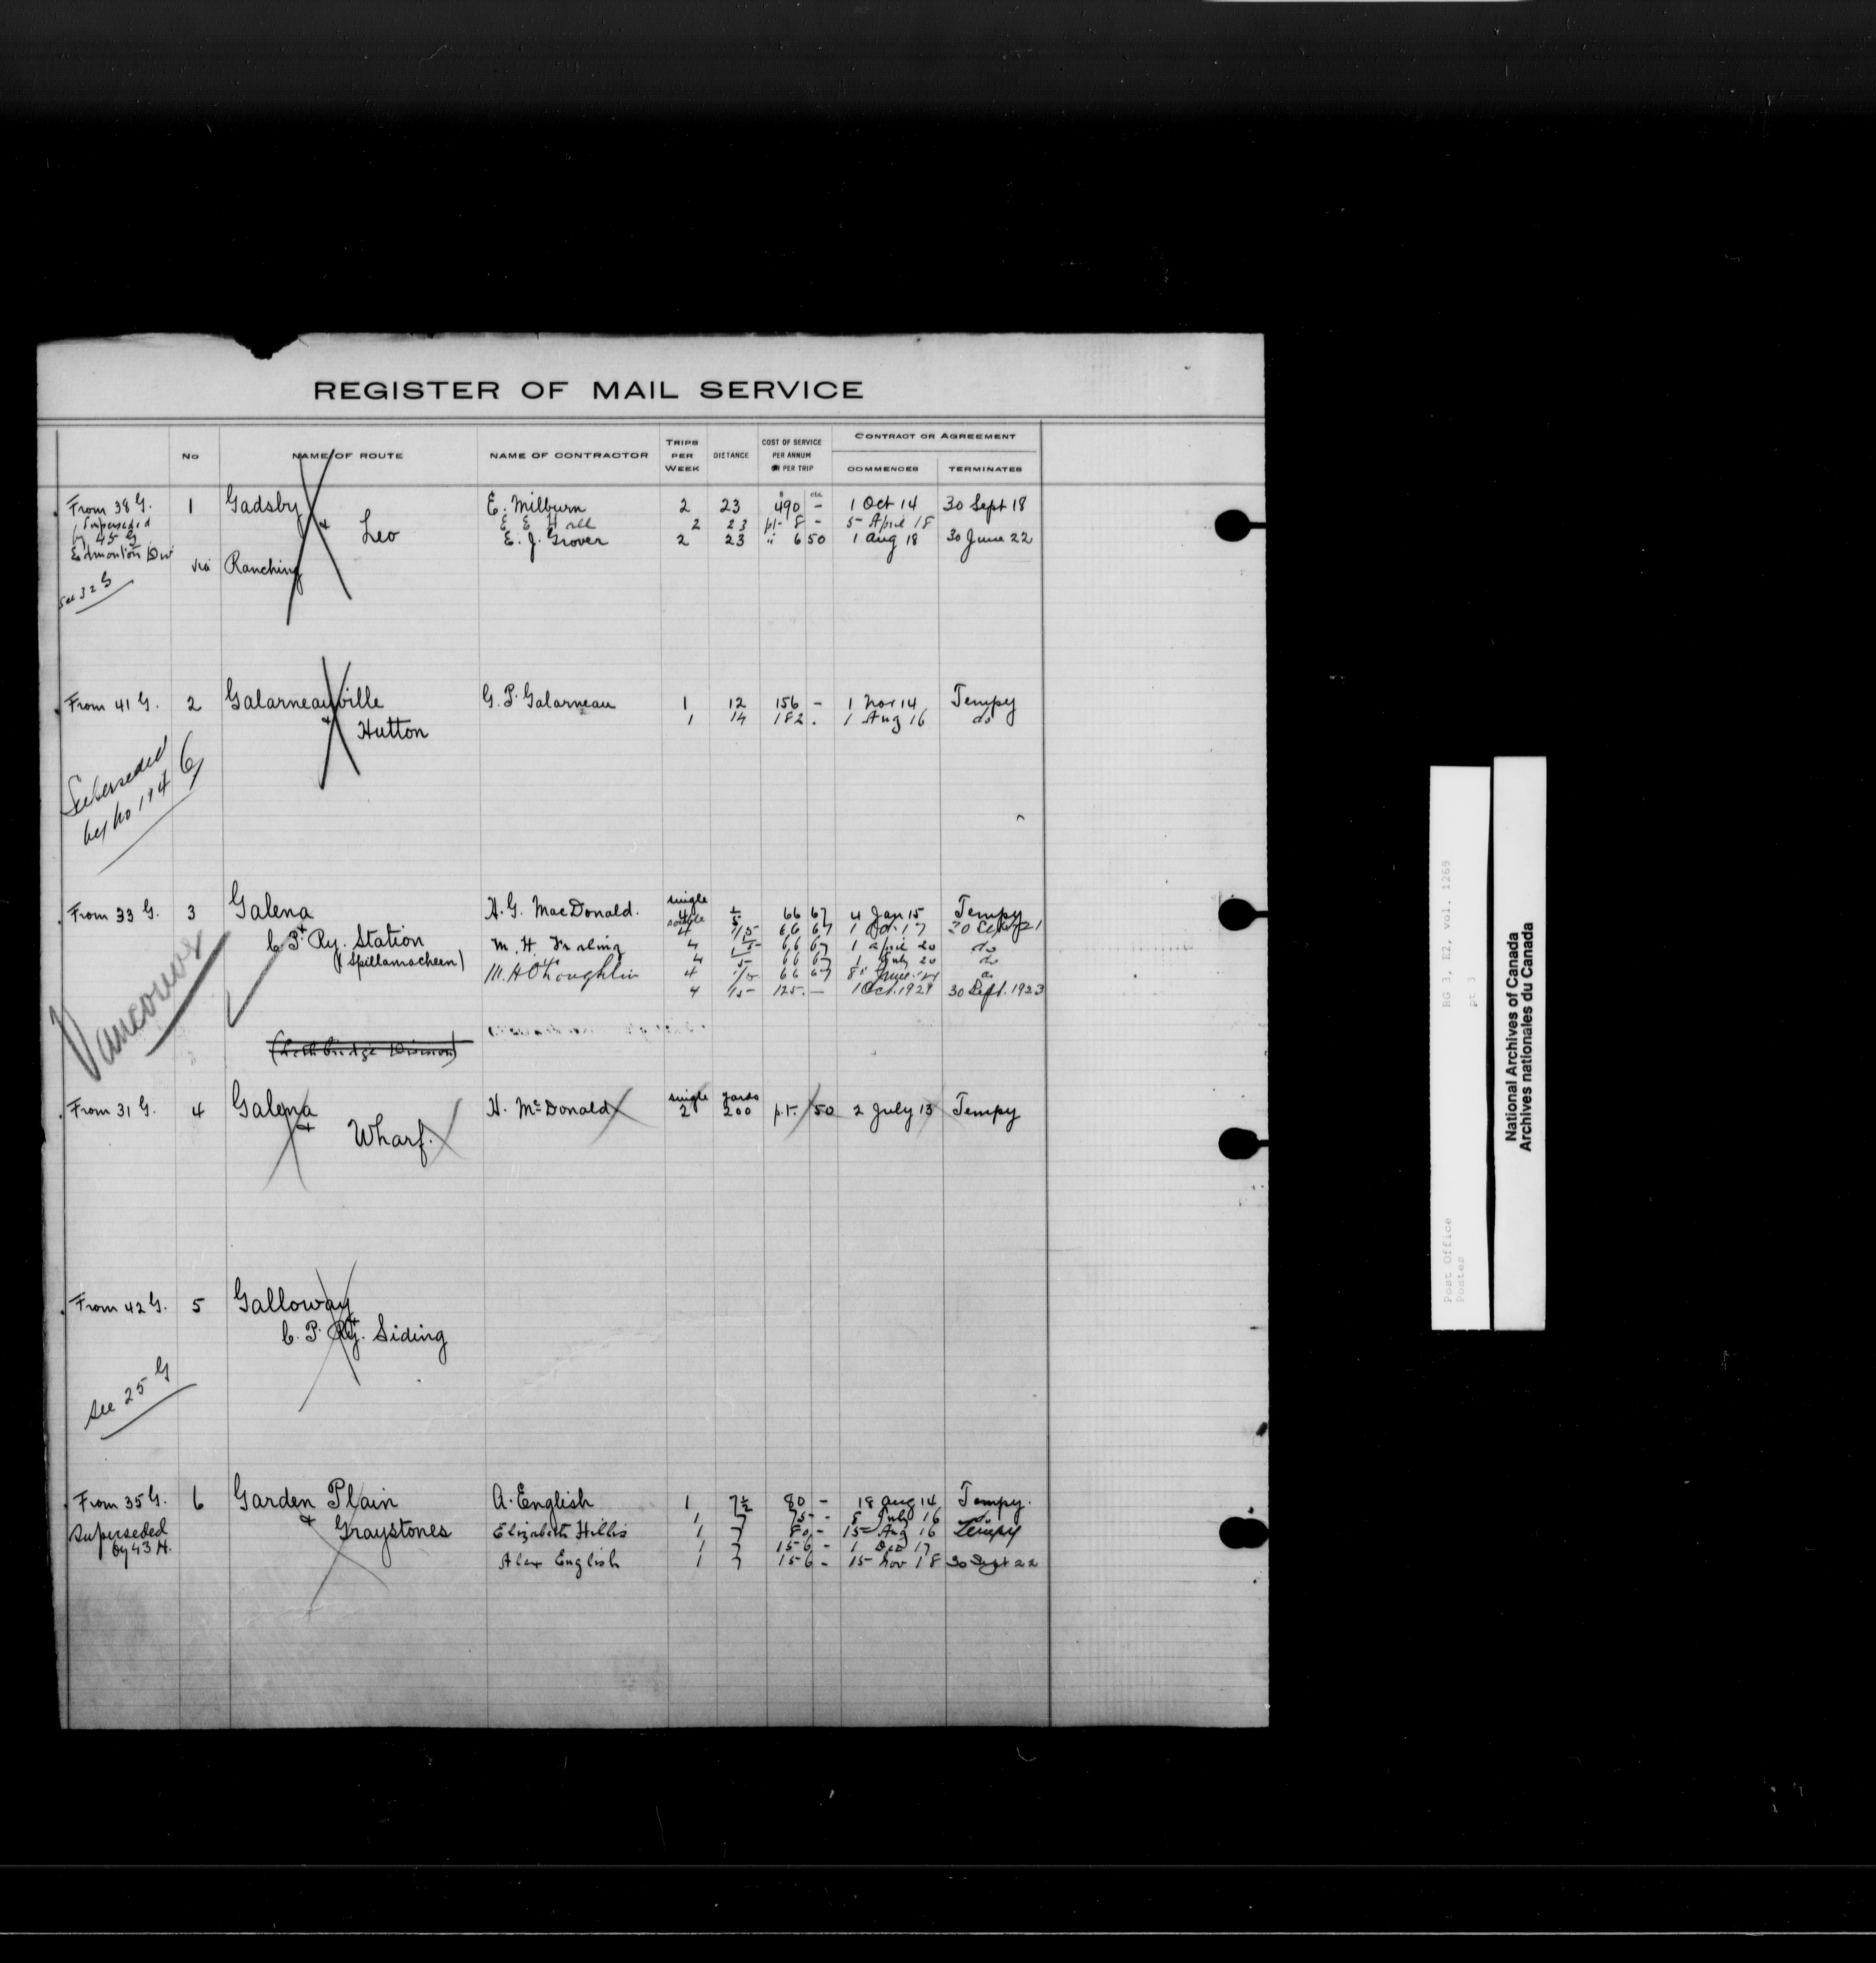 REGISTER OF MAIL SERVICE
No
NAME OF ROUTE
NAME OF CONTRACTOR
TRIPS PER WEEK
DISTANCE
COST OF SERVICE PER ANNUM OR PER TRIP
CONTRACT OR AGREEMENT
COMMENCES
TERMINATES
From 38 G. 1 Gadsby E. Milburn 2 23 490 - 1 Oct 14 30 Sept 18
Superseded by 45 G E. E. Hall 2 23 pt- 8 - 5 April 18
& Leo E. J. Grover 2 23 " 6 50 1 Aug 18 30 June 22
Edmonton Div
via Ranching
See 32 G
From 41 G. 2 Galarneauville G. P. Galarneau 1 12 156 - 1 Nov 14 Tempy
& Hutton 1 14 182 . 1 Aug 16 do
Superseded
by No 174 G
From 33 G. 3 Galena H. G. MacDonald. single 4 1/5 66 67 4 Jan 15 Tempy
4 1/5 66 67 1 Oct. 17 30 Sept 21
& C. P. Ry. Station M. H. 4 1/5 66 67 1 April 20 do
(Spillamacheen) 4 1/5 66 67 1 July 20 do
M. H. O'Loughlin 4 1/5 66 67 do
4 1/5 125. - 1 Oct. 1921 30 Sept. 1923
Vancouver
(Lethbridge Division)
From 31 G. 4 Galena H. McDonald single 2 yards 200 p.t. 50 2 July 13 Tempy
& Wharf.
From 42 G. 5 Galloway
& C. P. Ry. Siding
See 25 G
From 35 G. 6 Garden Plain A. English 1 7½ 80 - 18 Aug 14 Tempy.
1 7 75 - 8 July 16 do
Superseded & Graystones Elizabeth Hillis 1 7 80 - 15 Aug 16 Tempy
by 43 H. 1 7 156 - 1 Dec 17
Alex English 1 7 156 - 15 Nov 18 30 Sept 22
Post Office
Postes
RG 3, E2, vol. 1269
pt 3
National Archives of Canada
Archives nationales du Canada